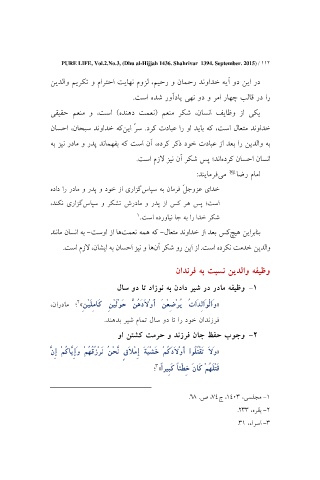 PURE LIFE, Vol.2.No.3, (Dhu al-Hijjah 1436. Shahrivar 1394. September. 2015) / ۱۱۲
در این دو آیه خداوند رحمان و رحیم، لزوم نهایت احترام و تکریم والدین
را در قالب چهار امر و دو نهی یادآور شده است.
یکی از وظایف انسان، شکر منعم (نعمت دهنده) است. و منعم حقیقی
خداوند متعال است، که باید او را عبادت کرد. سرّ این‌که خداوند سبحان، احسان
به والدین را بعد از عبادت خود ذکر کرده، آن است که بفهماند پدر و مادر نیز به
انسان احسان کرده‌اند؛ پس شکر آن نیز لازم است.
امام رضا می‌فرمایند:
خدای عزوجلّ فرمان به سپاس‌گزاری از خود و پدر و مادر را داده
است؛ پس هر کس از پدر و مادرش تشکر و سپاس‌گزاری نکند،
شکر خدا را به جا نیاورده است.۱
بنابراین هیچ‌کس بعد از خداوند متعال- که همه نعمت‌ها از اوست- به انسان مانند
والدین خدمت نکرده است. از این رو شکر آن‌ها و نیز احسان به ایشان، لازم است.
وظیفه والدین نسبت به فرزندان
۱- وظیفه مادر در شیر دادن به نوزاد تا دو سال
«وَالْوَالِدَاتُ یُرْضِعْنَ أَوْلَادَهُنَّ حَوْلَیْنِ کَامِلَیْنِ»۲؛ مادران،
فرزندان خود را تا دو سال تمام شیر بدهند.
۲- وجوب حفظ جان فرزند و حرمت کشتن او
«وَلَا تَقْتُلُوا أَوْلَادَکُمْ خَشْیَةَ إِمْلَاقٍ نَّحْنُ نَرْزُقُهُمْ وَإِیَّاکُمْ إِنَّ
قَتْلَهُمْ کَانَ خِطْئاً کَبِیراً»۳؛
۱- مجلسی، ۱۴۰۳، ج۷۴، ص. ۶۸.
۲- بقره، ۲۳۳.
۳- اسراء، ۳۱.